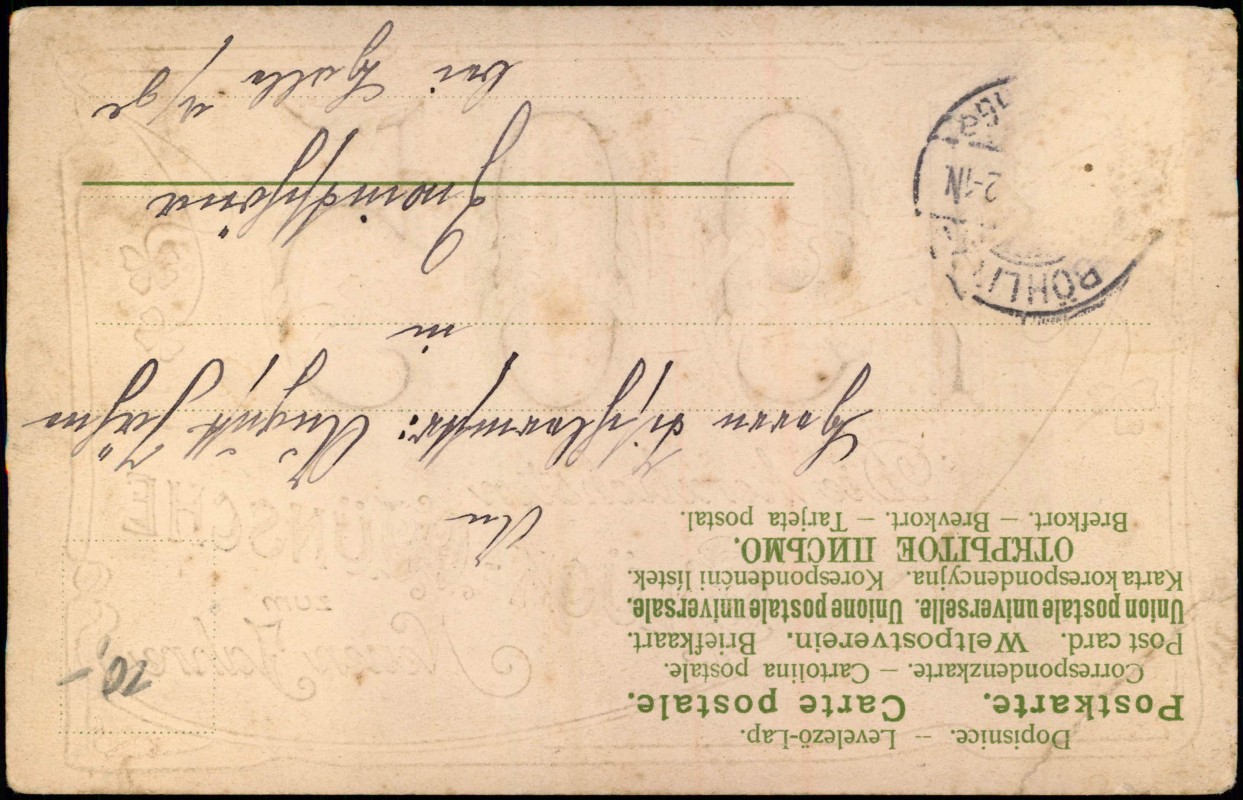 Dopisnice. — Levelező-Lap.
Postkarte. Carte postale.
Correspondenzkarte. — Cartolina postale.
Post card. Weltpostverein. Briefkaart.
Union postale universelle. Unione postale universale.
Karta korespondencyjna. Korespondenční lístek.
ОТКРЫТОЕ ПИСЬМО.
Brefkort. — Brevkort. — Tarjeta postal.
10,-
An
Herrn Tischlermstr: August Jahn
in
Gwindschöna
bei Halle a/S
BÖHLITZ
2-1N
Neuen Jahre
zum
WÜNSCHE
1905